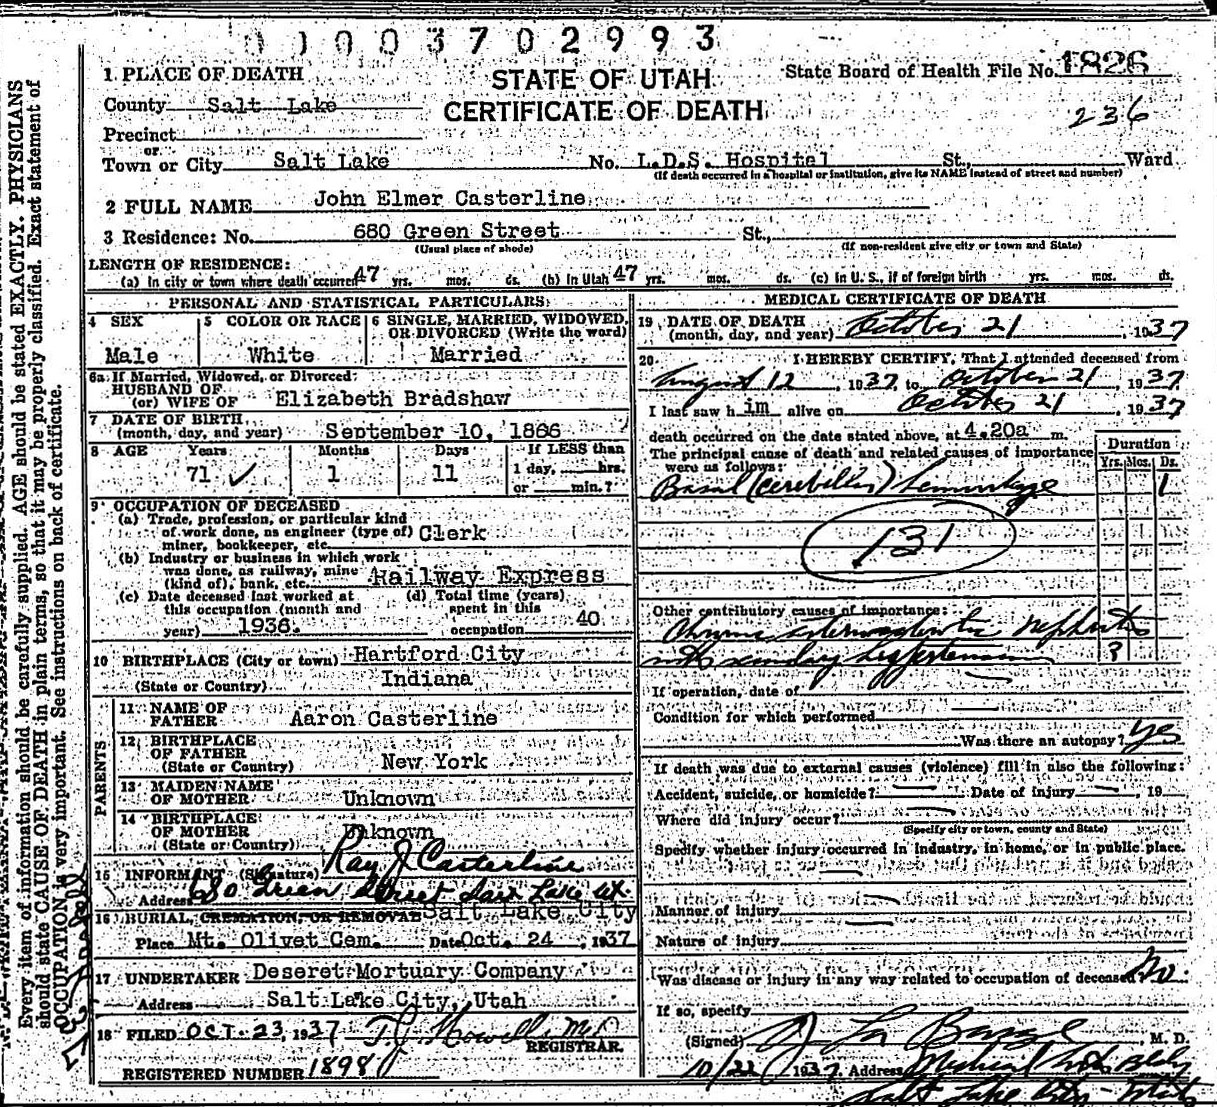 0 1 0 0 0 3 7 0 2 9 9 3
1 PLACE OF DEATH
STATE OF UTAH
State Board of Health File No. 1826
County Salt Lake
CERTIFICATE OF DEATH
236
Precinct
or
Town or City Salt Lake No. L.D.S. Hospital St., Ward
(If death occurred in a hospital or institution, give its NAME instead of street and number)
2 FULL NAME John Elmer Casterline
3 Residence: No. 680 Green Street St.,
(Usual place of abode) (If non-resident give city or town and State)
LENGTH OF RESIDENCE:
(a) In city or town where death occurred 47 yrs. mos. ds. (b) In Utah 47 yrs. mos. ds. (c) in U. S., if of foreign birth yrs. mos. ds.
PERSONAL AND STATISTICAL PARTICULARS
4 SEX
Male
5 COLOR OR RACE
White
6 SINGLE, MARRIED, WIDOWED,
OR DIVORCED (Write the word)
Married
6a If Married, Widowed, or Divorced:
HUSBAND OF
(or) WIFE OF Elizabeth Bradshaw
7 DATE OF BIRTH
(month, day, and year) September 10, 1866
8 AGE Years Months Days If LESS than
71 ✓ 1 11 1 day, hrs.
or min.?
9 OCCUPATION OF DECEASED
(a) Trade, profession, or particular kind
of work done, as engineer (type of) Clerk
miner, bookkeeper, etc.
(b) Industry or business in which work
was done, as railway, mine
(kind of), bank, etc. Railway Express
(c) Date deceased last worked at (d) Total time (years)
this occupation (month and spent in this
year) 1936. occupation 40
10 BIRTHPLACE (City or town) Hartford City
(State or Country) Indiana
PARENTS
11 NAME OF
FATHER Aaron Casterline
12 BIRTHPLACE
OF FATHER
(State or Country) New York
13 MAIDEN NAME
OF MOTHER Unknown
14 BIRTHPLACE
OF MOTHER
(State or Country) Unknown
15 INFORMANT (Signature) Ray J Casterline
Address 680 Green Street Salt Lake Ut
16 BURIAL, CREMATION, OR REMOVAL Salt Lake City
Place Mt. Olivet Cem. Date Oct. 24, 1937
17 UNDERTAKER Deseret Mortuary Company
Address Salt Lake City, Utah
18 FILED OCT. 23, 1937 T. J. Howells MD
REGISTRAR.
REGISTERED NUMBER 1898
MEDICAL CERTIFICATE OF DEATH
19 DATE OF DEATH
(month, day, and year) October 21, 1937
20 I HEREBY CERTIFY, That I attended deceased from
August 12, 1937 to October 21, 1937
I last saw h im alive on October 21, 1937
death occurred on the date stated above, at 4.20a m.
The principal cause of death and related causes of importance
were as follows:
Duration
Yrs. Mos. Ds.
Basal (cerebellar) hemorrhage 1
131
Other contributory causes of importance:
Chronic nephritis
with secondary hypertension ?
If operation, date of
Condition for which performed
Was there an autopsy? Yes
If death was due to external causes (violence) fill in also the following:
Accident, suicide, or homicide? Date of injury , 19
Where did injury occur?
(Specify city or town, county and State)
Specify whether injury occurred in industry, in home, or in public place.
Manner of injury
Nature of injury
Was disease or injury in any way related to occupation of deceased? No
If so, specify
(Signed) La Barge, M. D.
10/22 1937 Address Medical Arts Bldg
Salt Lake City - Utah
Every item of information should be carefully supplied. AGE should be stated EXACTLY. PHYSICIANS
should state CAUSE OF DEATH in plain terms, so that it may be properly classified. Exact statement of
OCCUPATION is very important. See instructions on back of certificate.